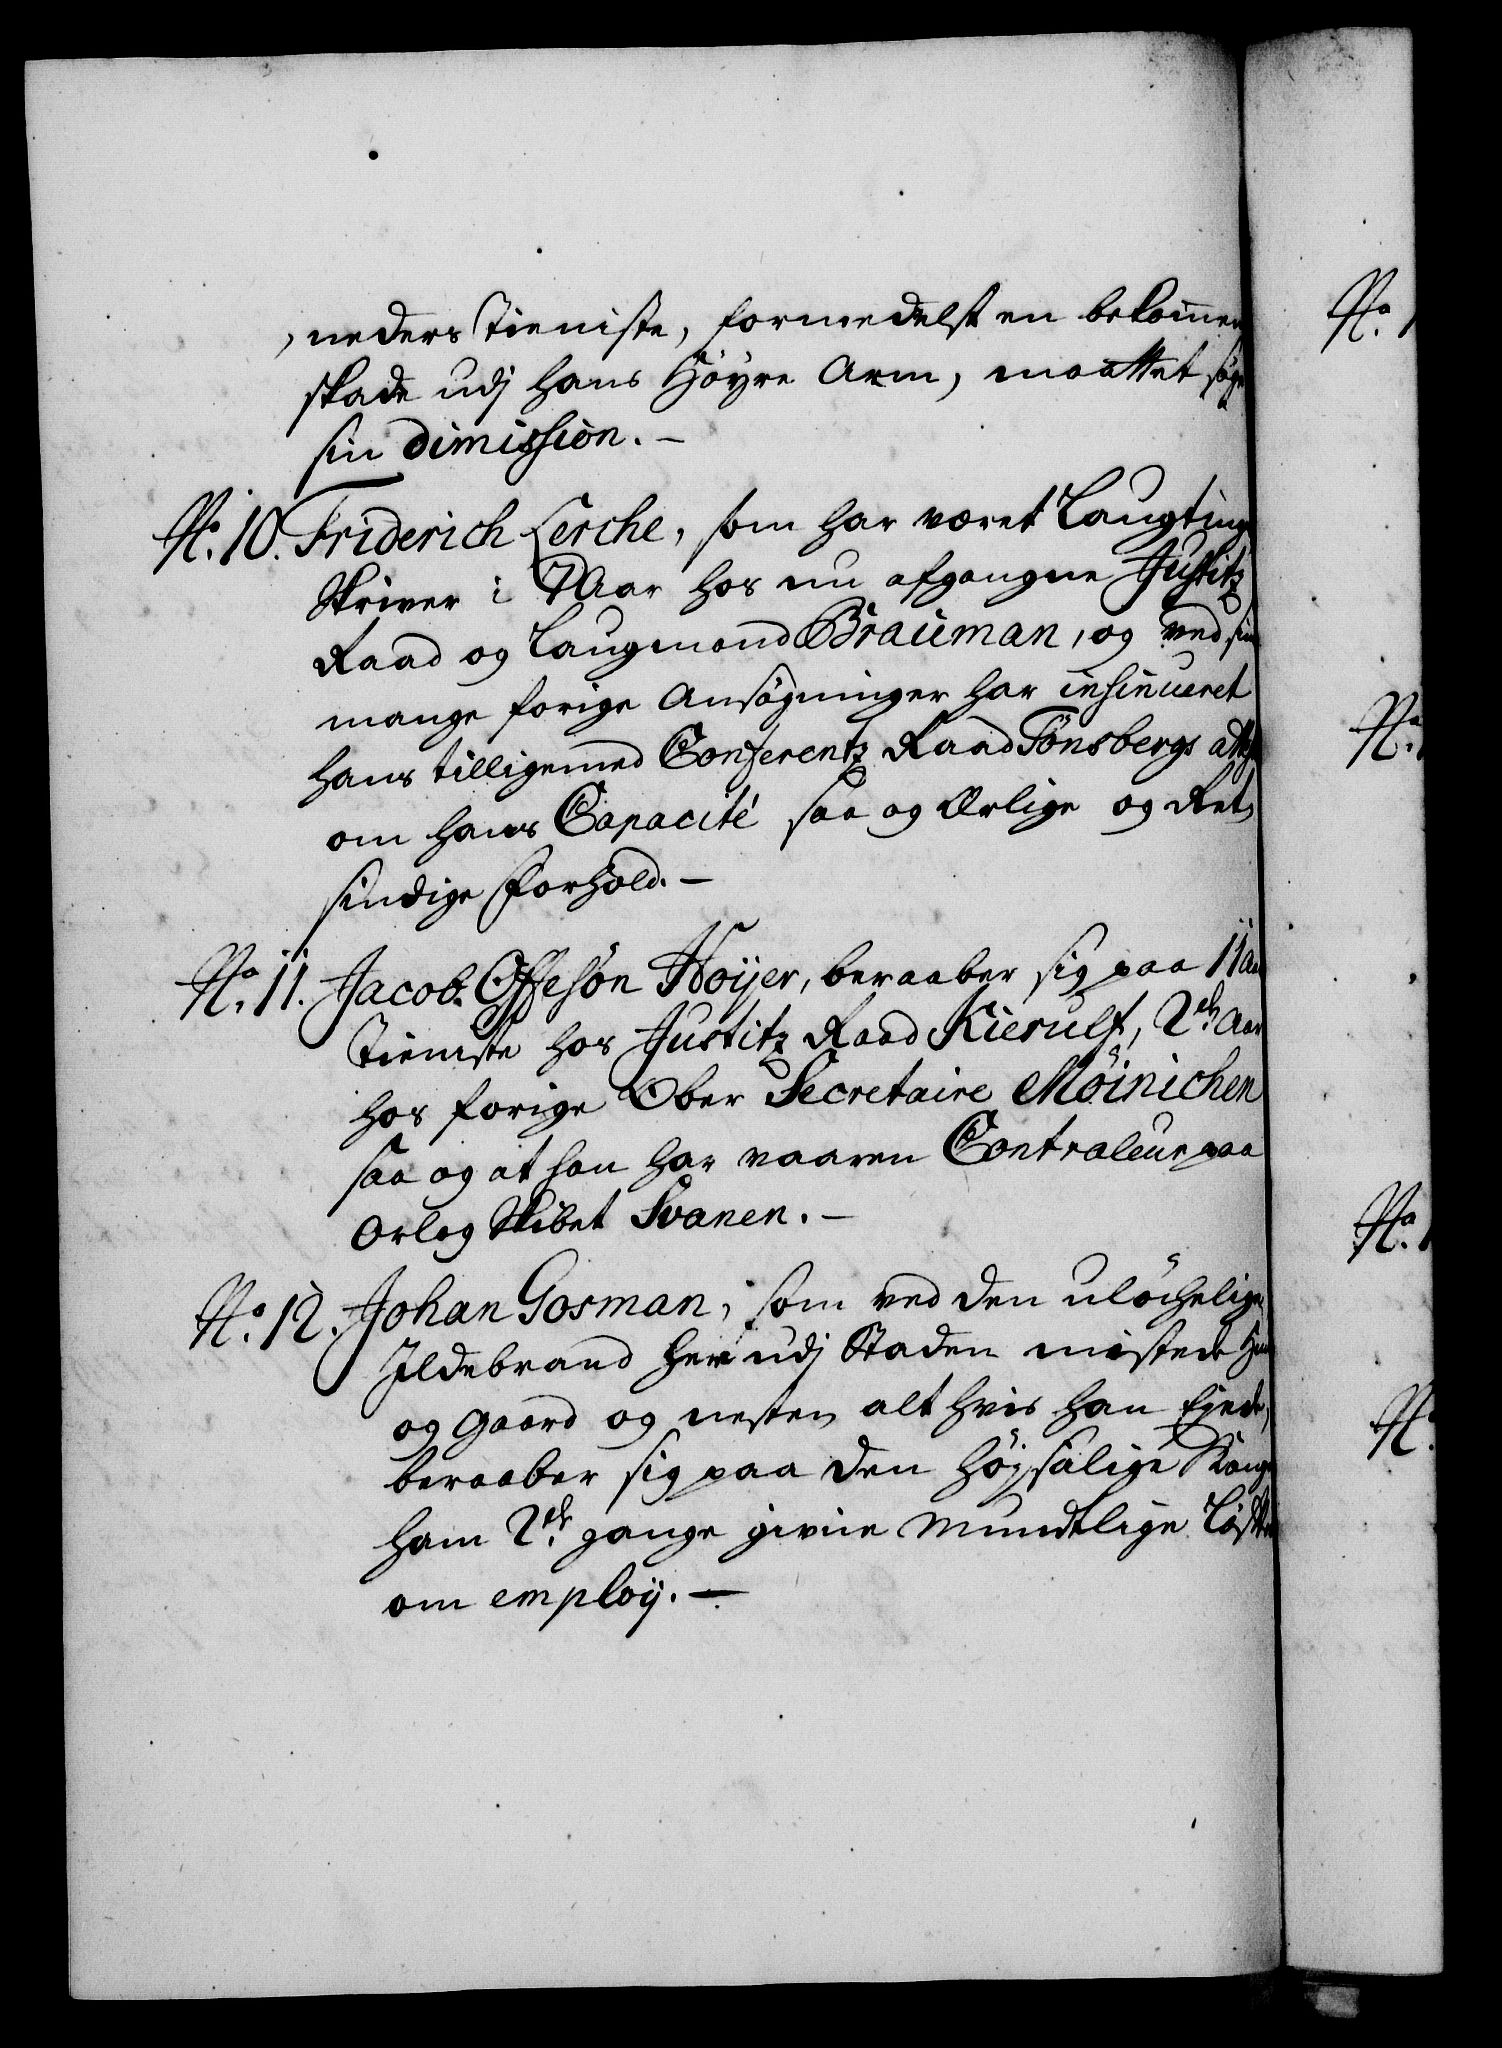 neders Tieniste, formedelst en bekommen
skade udj hans Höyre Arm, maattet søge
sin Dimission. –
No. 10. Friderich Lerche, som har været Laugtings
Skriver i 7 Aar hos nu afgangne Justitz
Raad og Laugmand Braüman, og ved sin
mange forige Ansøgninger har insinueret
hans tilligemed Conferentz Raad Tönsbergs
om hans Capacité saa og Ærlige og Ret
sindige Forhold. –
No. 11. Jacob Offesøn Hoÿer, beraaber sig paa 11 Aar
Tieniste hos Justitz Raad Kierulf, 2de Aar
hos forige Ober Secretaire Möinichen
saa og at han har vaaren Contraleur paa
Orlog Skibet Svanen. –
No. 12. Johan Gosman, som ved den ulöchelige
Ildebrand her udj Staden mistede Huus
og Gaard og nesten alt hvis han Ejede,
beraaber sig paa den Höjsalige Konge
ham 2de gange givne Mundtlige Løfte
om employ. –
No. 1
No.
No. 1
No.